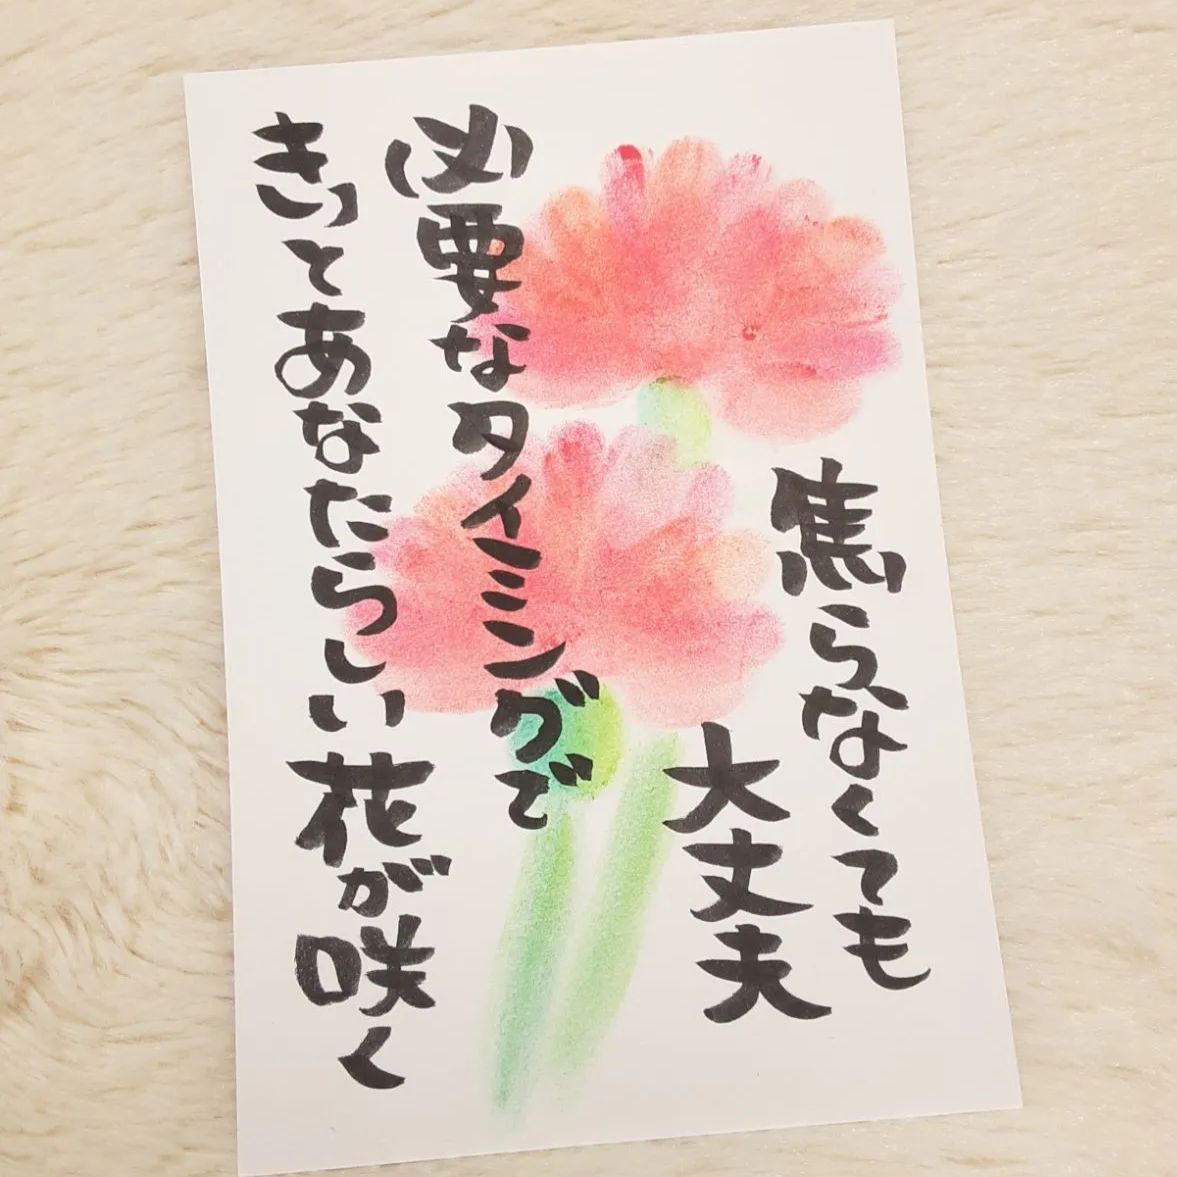 焦らなくても
大丈夫
必要なタイミングで
きっとあなたらしい花が咲く